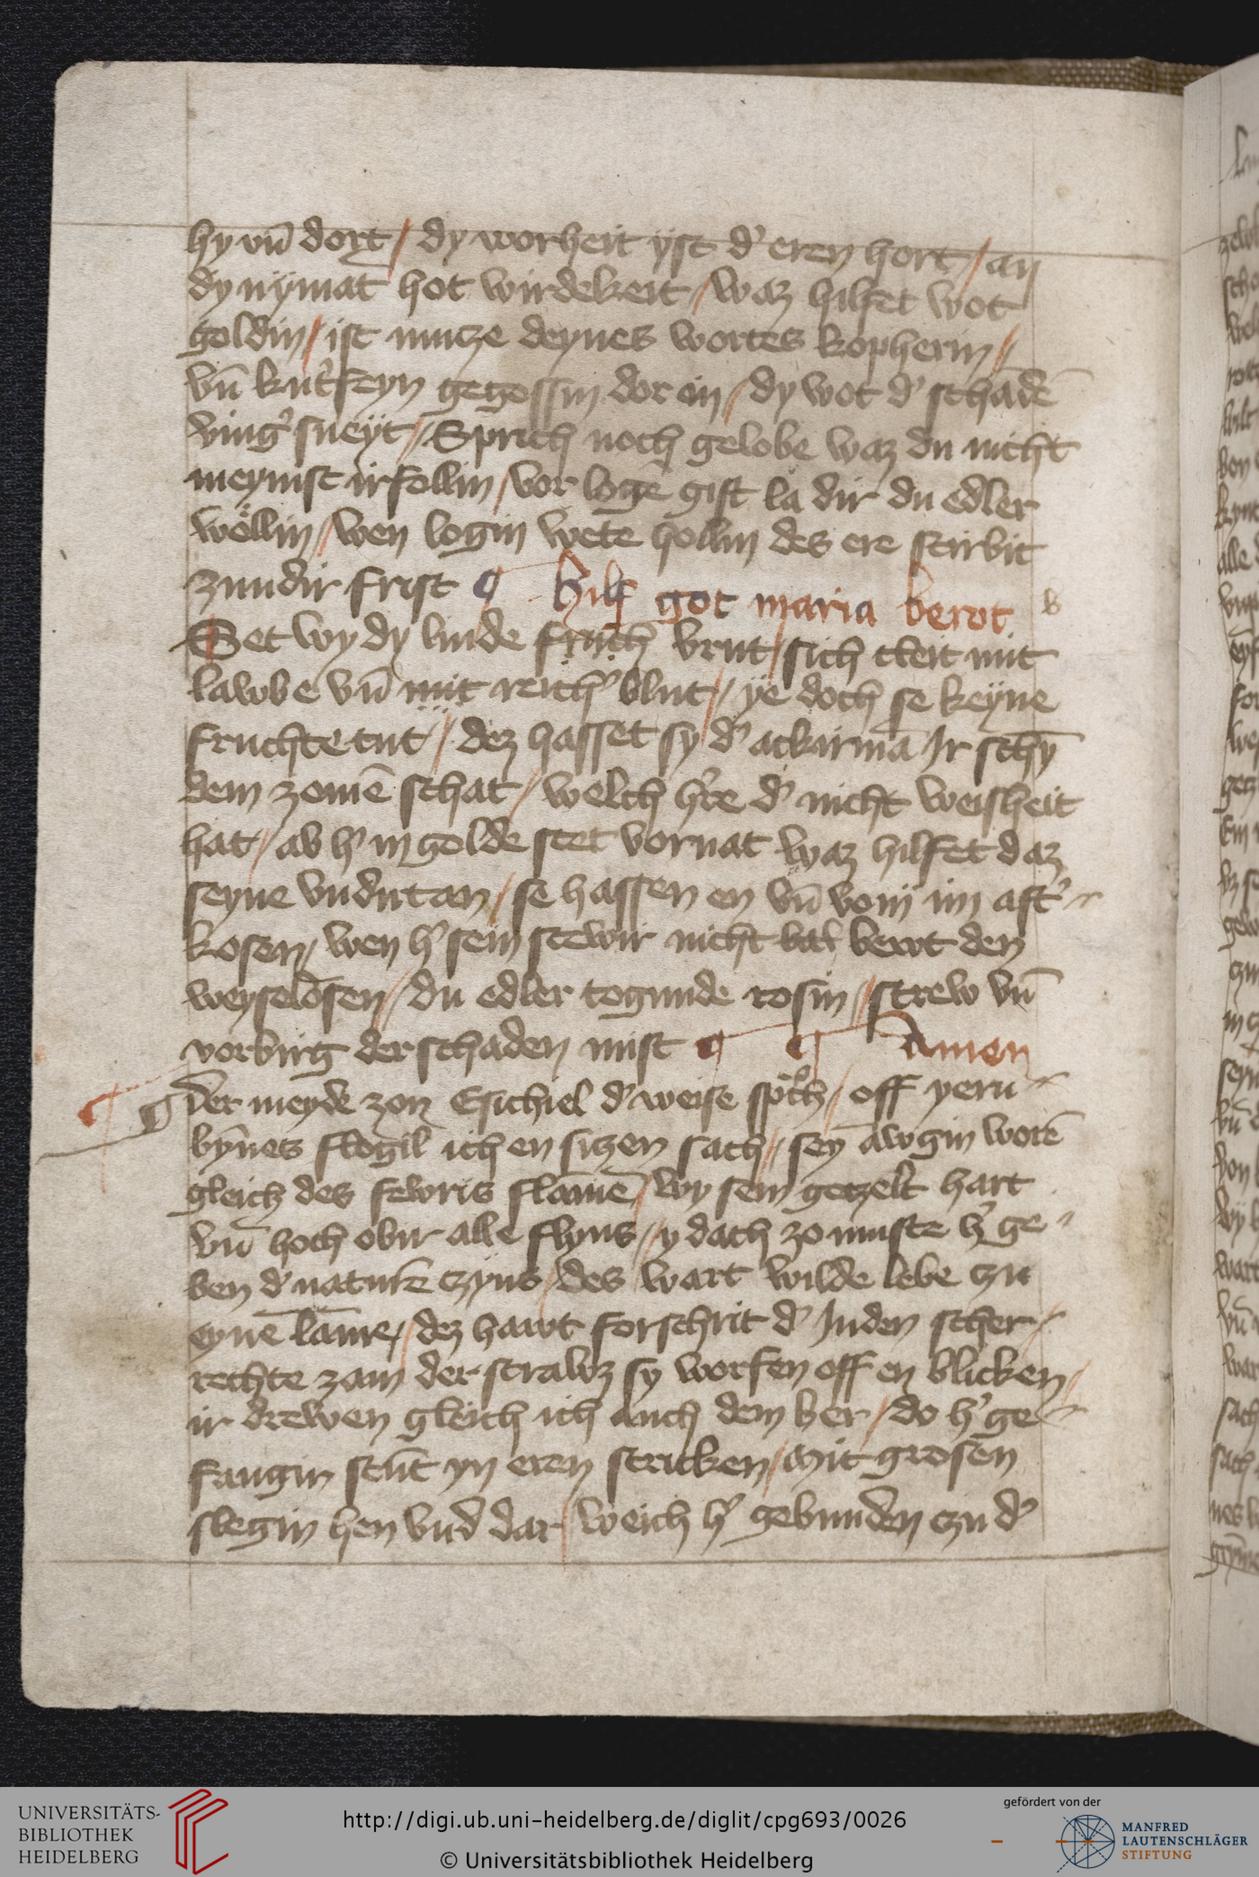 hy vn̄ dort / dy worheit ÿst d' eren hort / an
dy nÿmāt hot wirdekeit / waz hilfet wot
goldin / ist mūcze deynes wortes kopherin /
vn̄ kūt'feyn gegossin dor in / dy wot d' schādē
ving' sneÿt / Sprich noch gelobe waz du nicht
meynist irfollin / vor logē gift la dir du edler
wöllin / wen login wete hollin des ere stirbit
zundir frist ¶ hilf got maria berot
Set wy dy linde frūch brut / sich cleit mit
lawbe vn̄ mit reich' blut / ÿe doch se keyne
fruchte tut / dez hasset sy d' ackirmā Ir schȳ
dem zomē schat / welch h're d' nicht weisheit
hat / ab h' in golde stet vornat waz hilfet daz
seyne vndirtan / se hassen en vn̄ vom im aft'
kosen / wen h' sein stewir nicht hat bewt den
weyselosen / du edler togunde rosin / strew vn̄
vorbirg der schaden mist ¶ ¶ Amen
Der meyde zon Esichiel d' weise sp'ch / off yeru
bȳnes flogil ich en siczen sach / sey awgin worē
gleich des fewris flāme / wy sein geczelt hart
vn̄ hoch obir alle flyns / y dach zo muste h' ge
ben d' naturē czyns / des wart wilde lebe czu
eynē lāme / dez hawt forschrit d' Juden scher
rechte zam der strawz sy worfen off en blicken /
ir drewen gleich ich auch dem ber / do h' ge
fangin stūt yn eren stricken / Mit grosen
slegin hen vnd dar / weich h' gebunden czu d'
UNIVERSITÄTS-
BIBLIOTHEK
HEIDELBERG
http://digi.ub.uni-heidelberg.de/diglit/cpg693/0026
© Universitätsbibliothek Heidelberg
gefördert von der
MANFRED
LAUTENSCHLÄGER
STIFTUNG